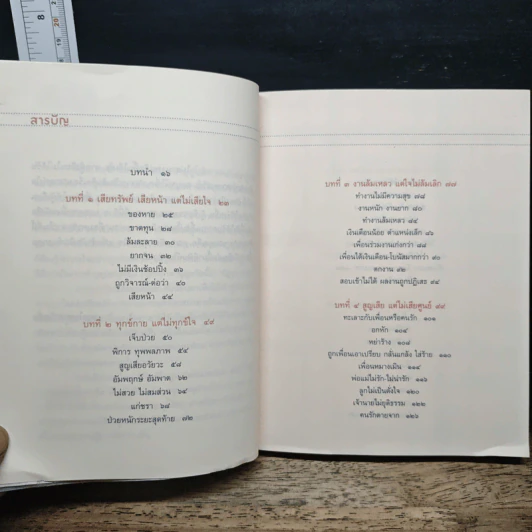 สารบัญ
บทนำ ๑๖
บทที่ ๑ เสียทรัพย์ เสียหน้า แต่ไม่เสียใจ ๒๓
ของหาย ๒๕
ขาดทุน ๒๘
ล้มละลาย ๓๐
ยากจน ๓๒
ไม่มีเงินช้อปปิ้ง ๓๖
ถูกวิจารณ์-ต่อว่า ๔๐
เสียหน้า ๔๔
บทที่ ๒ ทุกข์กาย แต่ไม่ทุกข์ใจ ๔๙
เจ็บป่วย ๕๐
พิการ ทุพพลภาพ ๕๔
สูญเสียอวัยวะ ๕๘
อัมพฤกษ์ อัมพาต ๖๒
ไม่สวย ไม่สมส่วน ๖๔
แก่ชรา ๖๘
ป่วยหนักระยะสุดท้าย ๗๒
บทที่ ๓ งานล้มเหลว แต่ใจไม่ล้มเลิก ๗๗
ทำงานไม่มีความสุข ๗๘
งานหนัก งานยาก ๘๐
ทำงานล้มเหลว ๘๔
เงินเดือนน้อย ตำแหน่งเล็ก ๘๖
เพื่อนร่วมงานเก่งกว่า ๘๘
เพื่อนได้เงินเดือน-โบนัสมากกว่า ๙๐
ตกงาน ๙๒
สอบเข้าไม่ได้ ผลงานถูกปฏิเสธ ๙๔
บทที่ ๔ สูญเสีย แต่ไม่เสียศูนย์ ๙๙
ทะเลาะกับเพื่อนหรือคนรัก ๑๐๑
อกหัก ๑๐๔
หย่าร้าง ๑๐๘
ถูกเพื่อนเอาเปรียบ กลั่นแกล้ง ใส่ร้าย ๑๑๐
เพื่อนหมางเมิน ๑๑๔
พ่อแม่ไม่รัก-ไม่น่ารัก ๑๑๖
ลูกไม่เป็นดั่งใจ ๑๒๐
เจ้านายไม่ยุติธรรม ๑๒๒
คนรักตายจาก ๑๒๖
8
20